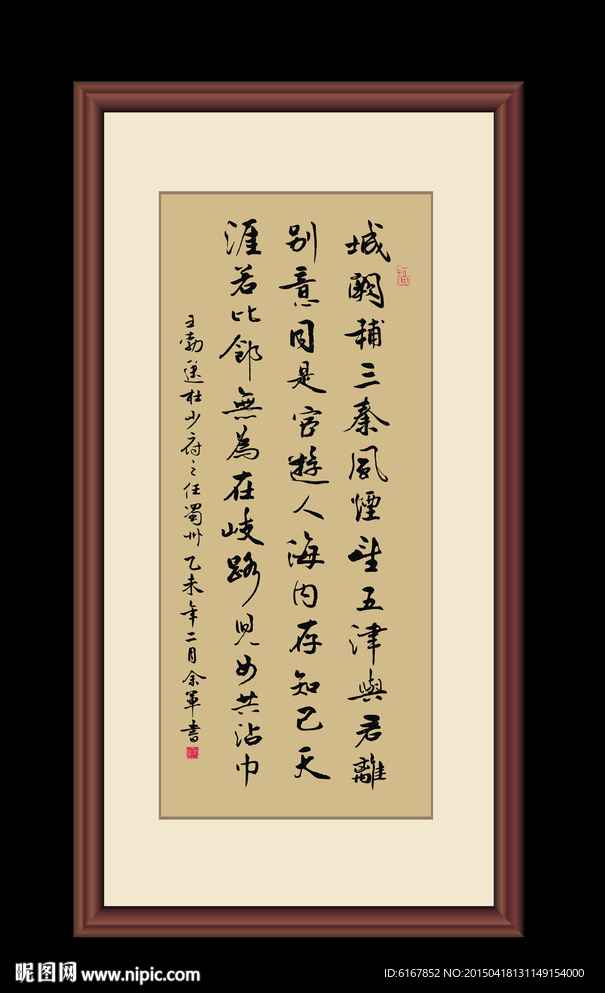 城闕輔三秦風煙望五津與君離
別意同是宦遊人海内存知己天
涯若比鄰無為在歧路児女共沾巾
王勃送杜少府之任蜀州乙未年二月余軍書
昵图网 www.nipic.com
ID:6167852 NO:20150418131149154000